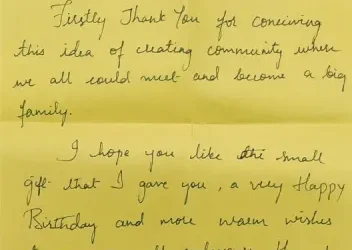 Firstly Thank You for conceiving
this idea of creating community where
we all could meet and become a big
family.
I hope you like the small
gift that I gave you, a very Happy
Birthday and more warm wishes